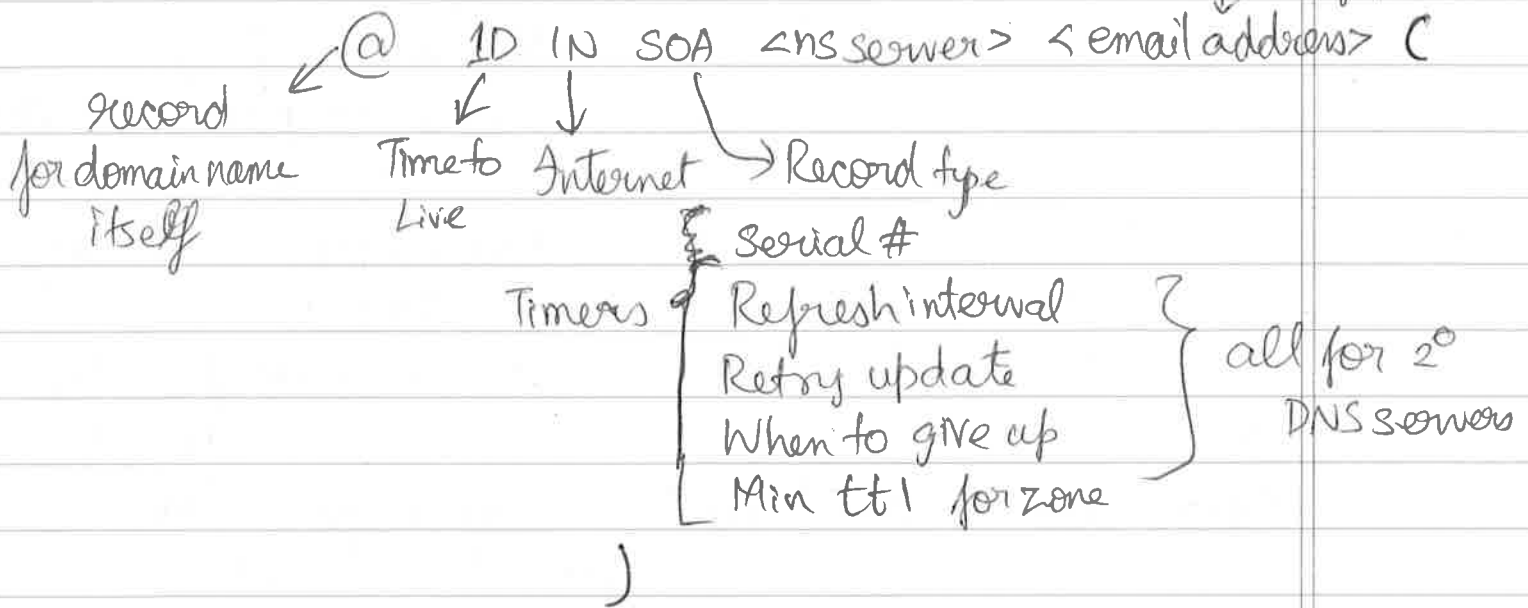 @ 1D IN SOA <ns server> <email address> (
record
for domain name
itself
Time to
Live
Internet
Record type
Serial #
Timers
Refresh interval
Retry update
When to give up
Min ttl for zone
all for 2°
DNS servers
)